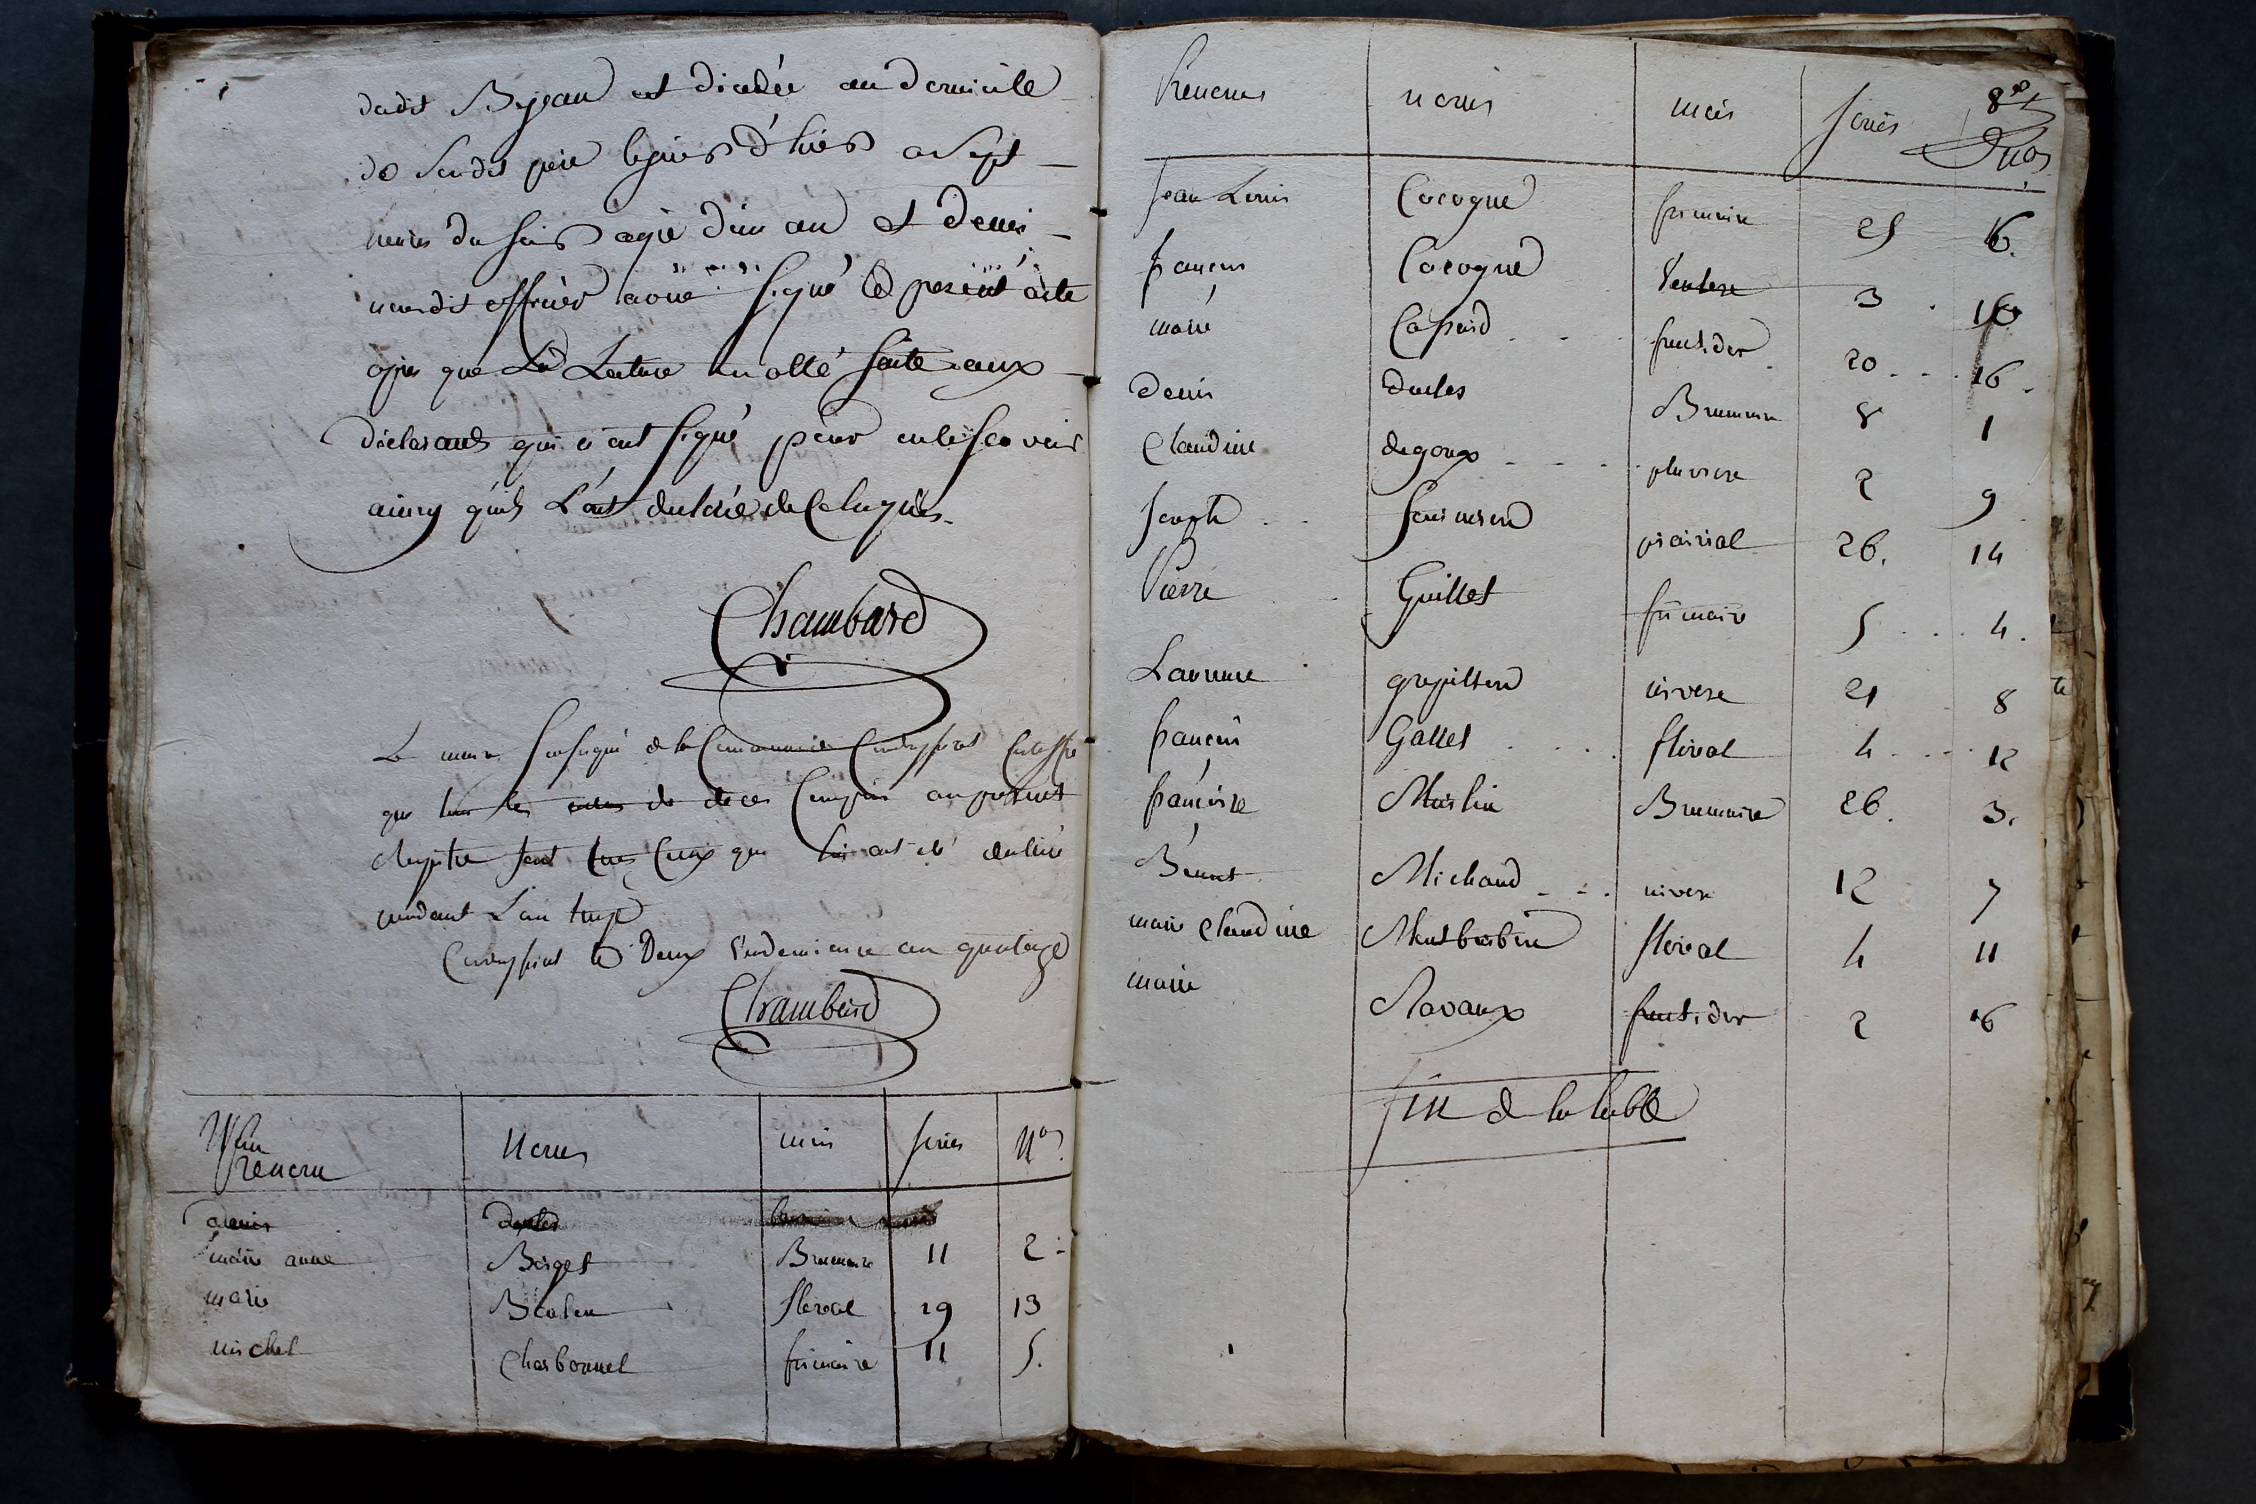 dudit Bejean est dicedée au domicile
de sondit père le jours d'hiers a sept
heures du soirs agée d'un an et demi
nousdit officier avons signé le present acte
apres que la Lecture en a été faite aux
déclarants qui n'ont signé pour ne le scavoir
ainsy qu'ils l'ont declaré de ce requis.
Chambard
Le maire soussigné de la Commune de certifie
que tous les actes de deces Compris au present
Registre sont tous Ceux qui lui ont été declaré
pendant L'an treize
le Deux Vendemiaire an quatorze
Chambard
Prenom Noms mois jours Nos
denis
marie anne Berget Brumaire 11 2
marie floreal 19 13
michel Charbonnel frimaire 11 5.
Prenoms noms mois jours Nos
Jean Louis Cocogne frimaire 25 6.
francois Cocogne Ventose 3 10
marie Caffard fructidor 20 16
denis Brumaire 8 1
Claudine degoux pluviose 2 9
Joseph prairial 26. 14
Pierre Guillet frimaire 5 4.
Laurence grapillard nivose 21 8
francois Gallet floreal 4 12
francoise Merlin Brumaire 26. 3.
Benoit Michaud nivose 12 7
marie Claudine Montbarbin floreal 4 11
marie Ravaux fructidor 2 16
fin de la table